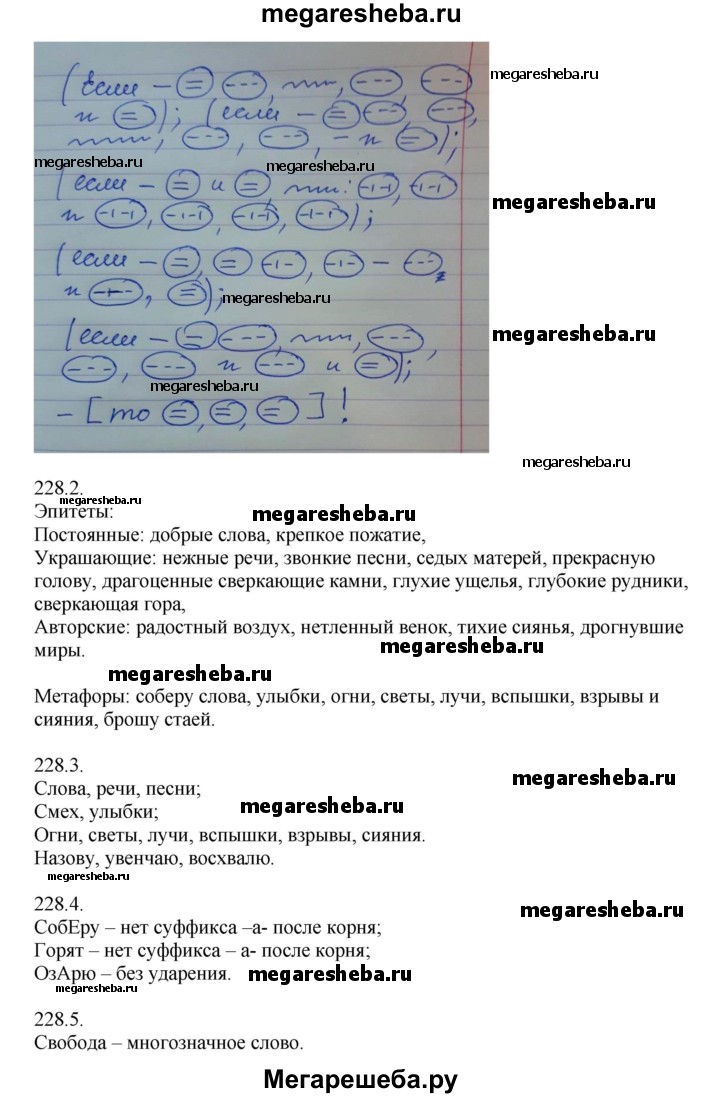 megaresheba.ru
(Если – , , 
megaresheba.ru
и ); (если – , ,
, , , – и );
megaresheba.ru
megaresheba.ru
(если – и , : , 
megaresheba.ru
и , , , );
(если – , , – ,
и , );
megaresheba.ru
megaresheba.ru
(если – , , ,
, и и );
megaresheba.ru
– [то , , ]!
megaresheba.ru
228.2.
megaresheba.ru
Эпитеты:
megaresheba.ru
Постоянные: добрые слова, крепкое пожатие,
Украшающие: нежные речи, звонкие песни, седых матерей, прекрасную
голову, драгоценные сверкающие камни, глухие ущелья, глубокие рудники,
сверкающая гора,
Авторские: радостный воздух, нетленный венок, тихие сиянья, дрогнувшие
megaresheba.ru
миры.
megaresheba.ru
Метафоры: соберу слова, улыбки, огни, светы, лучи, вспышки, взрывы и
сияния, брошу стаей.
228.3.
megaresheba.ru
Слова, речи, песни;
megaresheba.ru
Смех, улыбки;
Огни, светы, лучи, вспышки, взрывы, сияния.
Назову, увенчаю, восхвалю.
megaresheba.ru
228.4.
megaresheba.ru
СобЕру – нет суффикса –а- после корня;
Горят – нет суффикса – а- после корня;
ОзАрю – без ударения.
megaresheba.ru
megaresheba.ru
228.5.
Свобода – многозначное слово.
Мегарешеба.ру